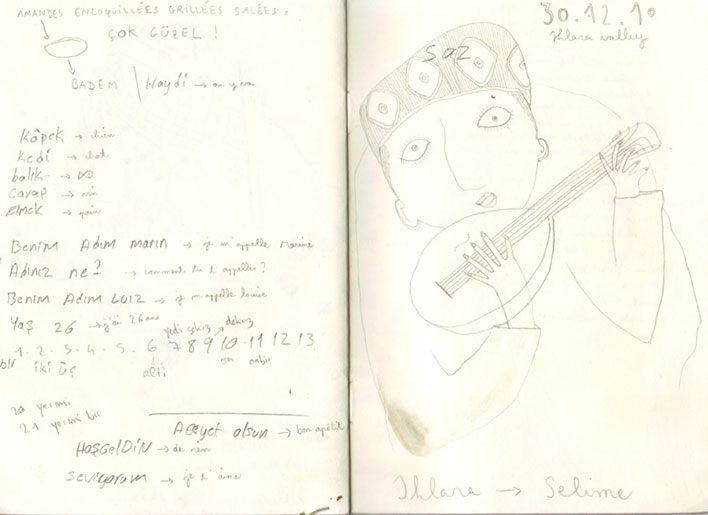 AMANDES ENCOQUILLÉES GRILLÉES SALÉES :
ÇOK GÜZEL !
BADEM | Haydi → on y va
Köpek → chien
kedi → chat
balık →
carap → vin
Ekmek → pain
Benim Adim marin → je m'appelle Marine
Adiniz ne? → comment tu t'appelles ?
Benim Adim Luiz → je m'appelle louise
Yaş 26 → j'ai 26 ans
yedi sekiz → dokuz
1 . 2 . 3 . 4 . 5 . 6 7 8 9 10 . 11 12 13
bir iki üç alti on onbir
20 yermi
21 yermi bir
Afiyet olsun → bon apétit
HOŞGELDİN → de rien
seviyorum → je t'aime
30.12.10
Ihlara valley
saz
Ihlara → Selime